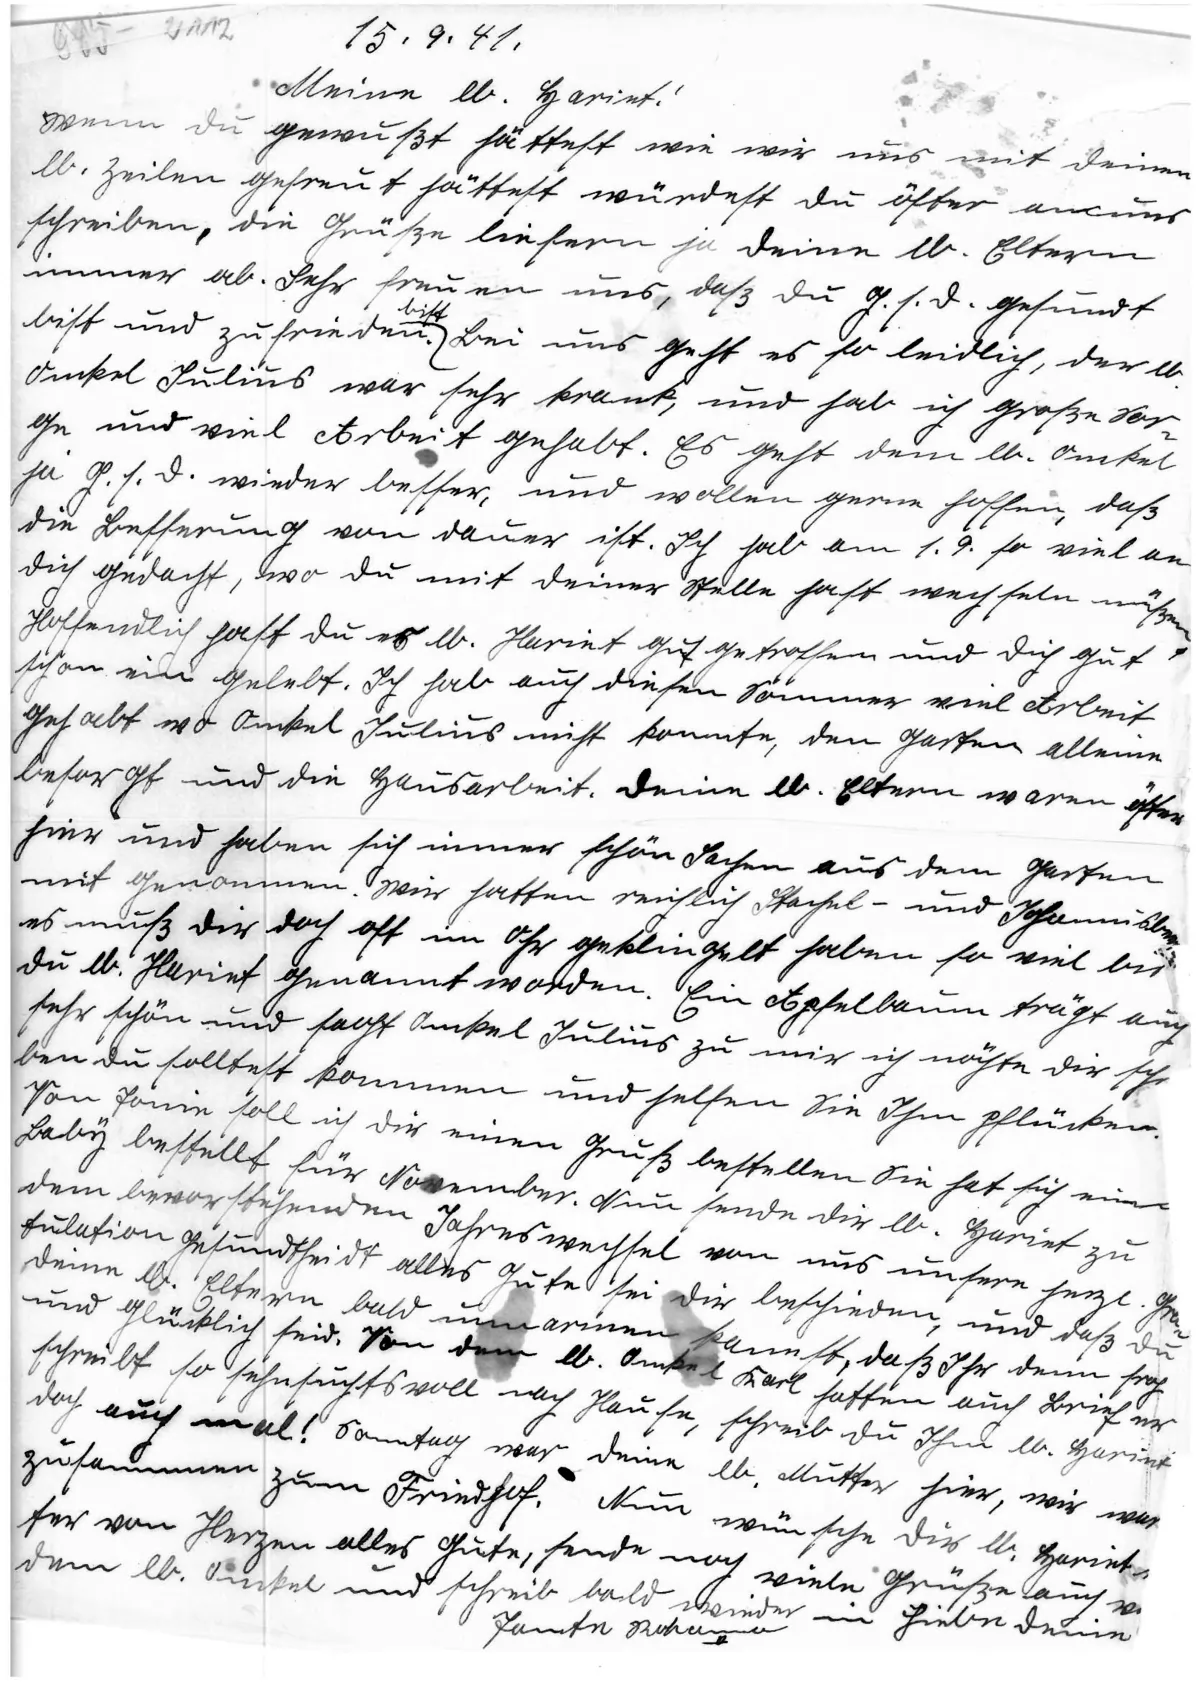 15.9.41.
Meine lb. Hariet!
Wenn du gewußt hättest wie wir uns mit deinen
lb. Zeilen gefreut hättest würdest du öfter an uns
schreiben, die Grüße liefern ja deine lb. Eltern
immer ab. Sehr freuen uns, daß du G.s.D. gesundt
bist und zufrieden bist. Bei uns geht es so leidlich, der lb.
Onkel Julius war sehr krank, und hab ich große Sor-
ge und viel Arbeit gehabt. Es geht dem lb. Onkel
ja G.s.D. wieder besser, und wollen gerne hoffen, daß
die Besserung von dauer ist. Ich hab am 1.9. so viel an
dich gedacht, wo du mit deiner Stelle hast wechseln müßen.
Hoffendlich hast du es lb. Hariet gut getroffen und dich gut
schon ein gelebt. Ich hab auch diesen Sommer viel Arbeit
gehabt wo Onkel Julius nicht konnte, den Garten alleine
besorgt und die Hausarbeit. Deine lb. Eltern waren öfter
hier und haben sich immer schön Sachen aus dem Garten
mit genommen. Wir hatten reichlich Stachel- und Johannisbee.
es muß dir doch oft im Ohr geklingelt haben so viel bis
du lb. Hariet genannt worden. Ein Apfelbaum trägt auch
sehr schön und sagt Onkel Julius zu mir ich möchte dir schr
ben du solltest kommen und helfen Sie Ihm pflücken.
Von Tonie soll ich dir einen Gruß bestellen Sie hat sich ein
Baby bestellt für November. Nun sende dir lb. Hariet zu
dem bevorstehenden Jahreswechsel von uns unsere herzl. Gra-
tulation Gesundtheidt alles Gute sei dir beschieden, und daß du
deine lb. Eltern bald umarmen kannst, daß Ihr denn froh
und glücklich seid. Von dem lb. Onkel Karl hatten auch Brief er
schreibt so sehnsuchtsvoll nach Hause, schreib du Ihm lb. Hariet
doch auch mal! Sonntag war deine lb. Mutter hier, wir war
zusammen zum Friedhof. Nun wünsche dir lb. Hariet
ter von Herzen alles Gute, sende noch viele Grüße auch v
dem lb. Onkel und schreib bald wieder in Liebe deine
Tante